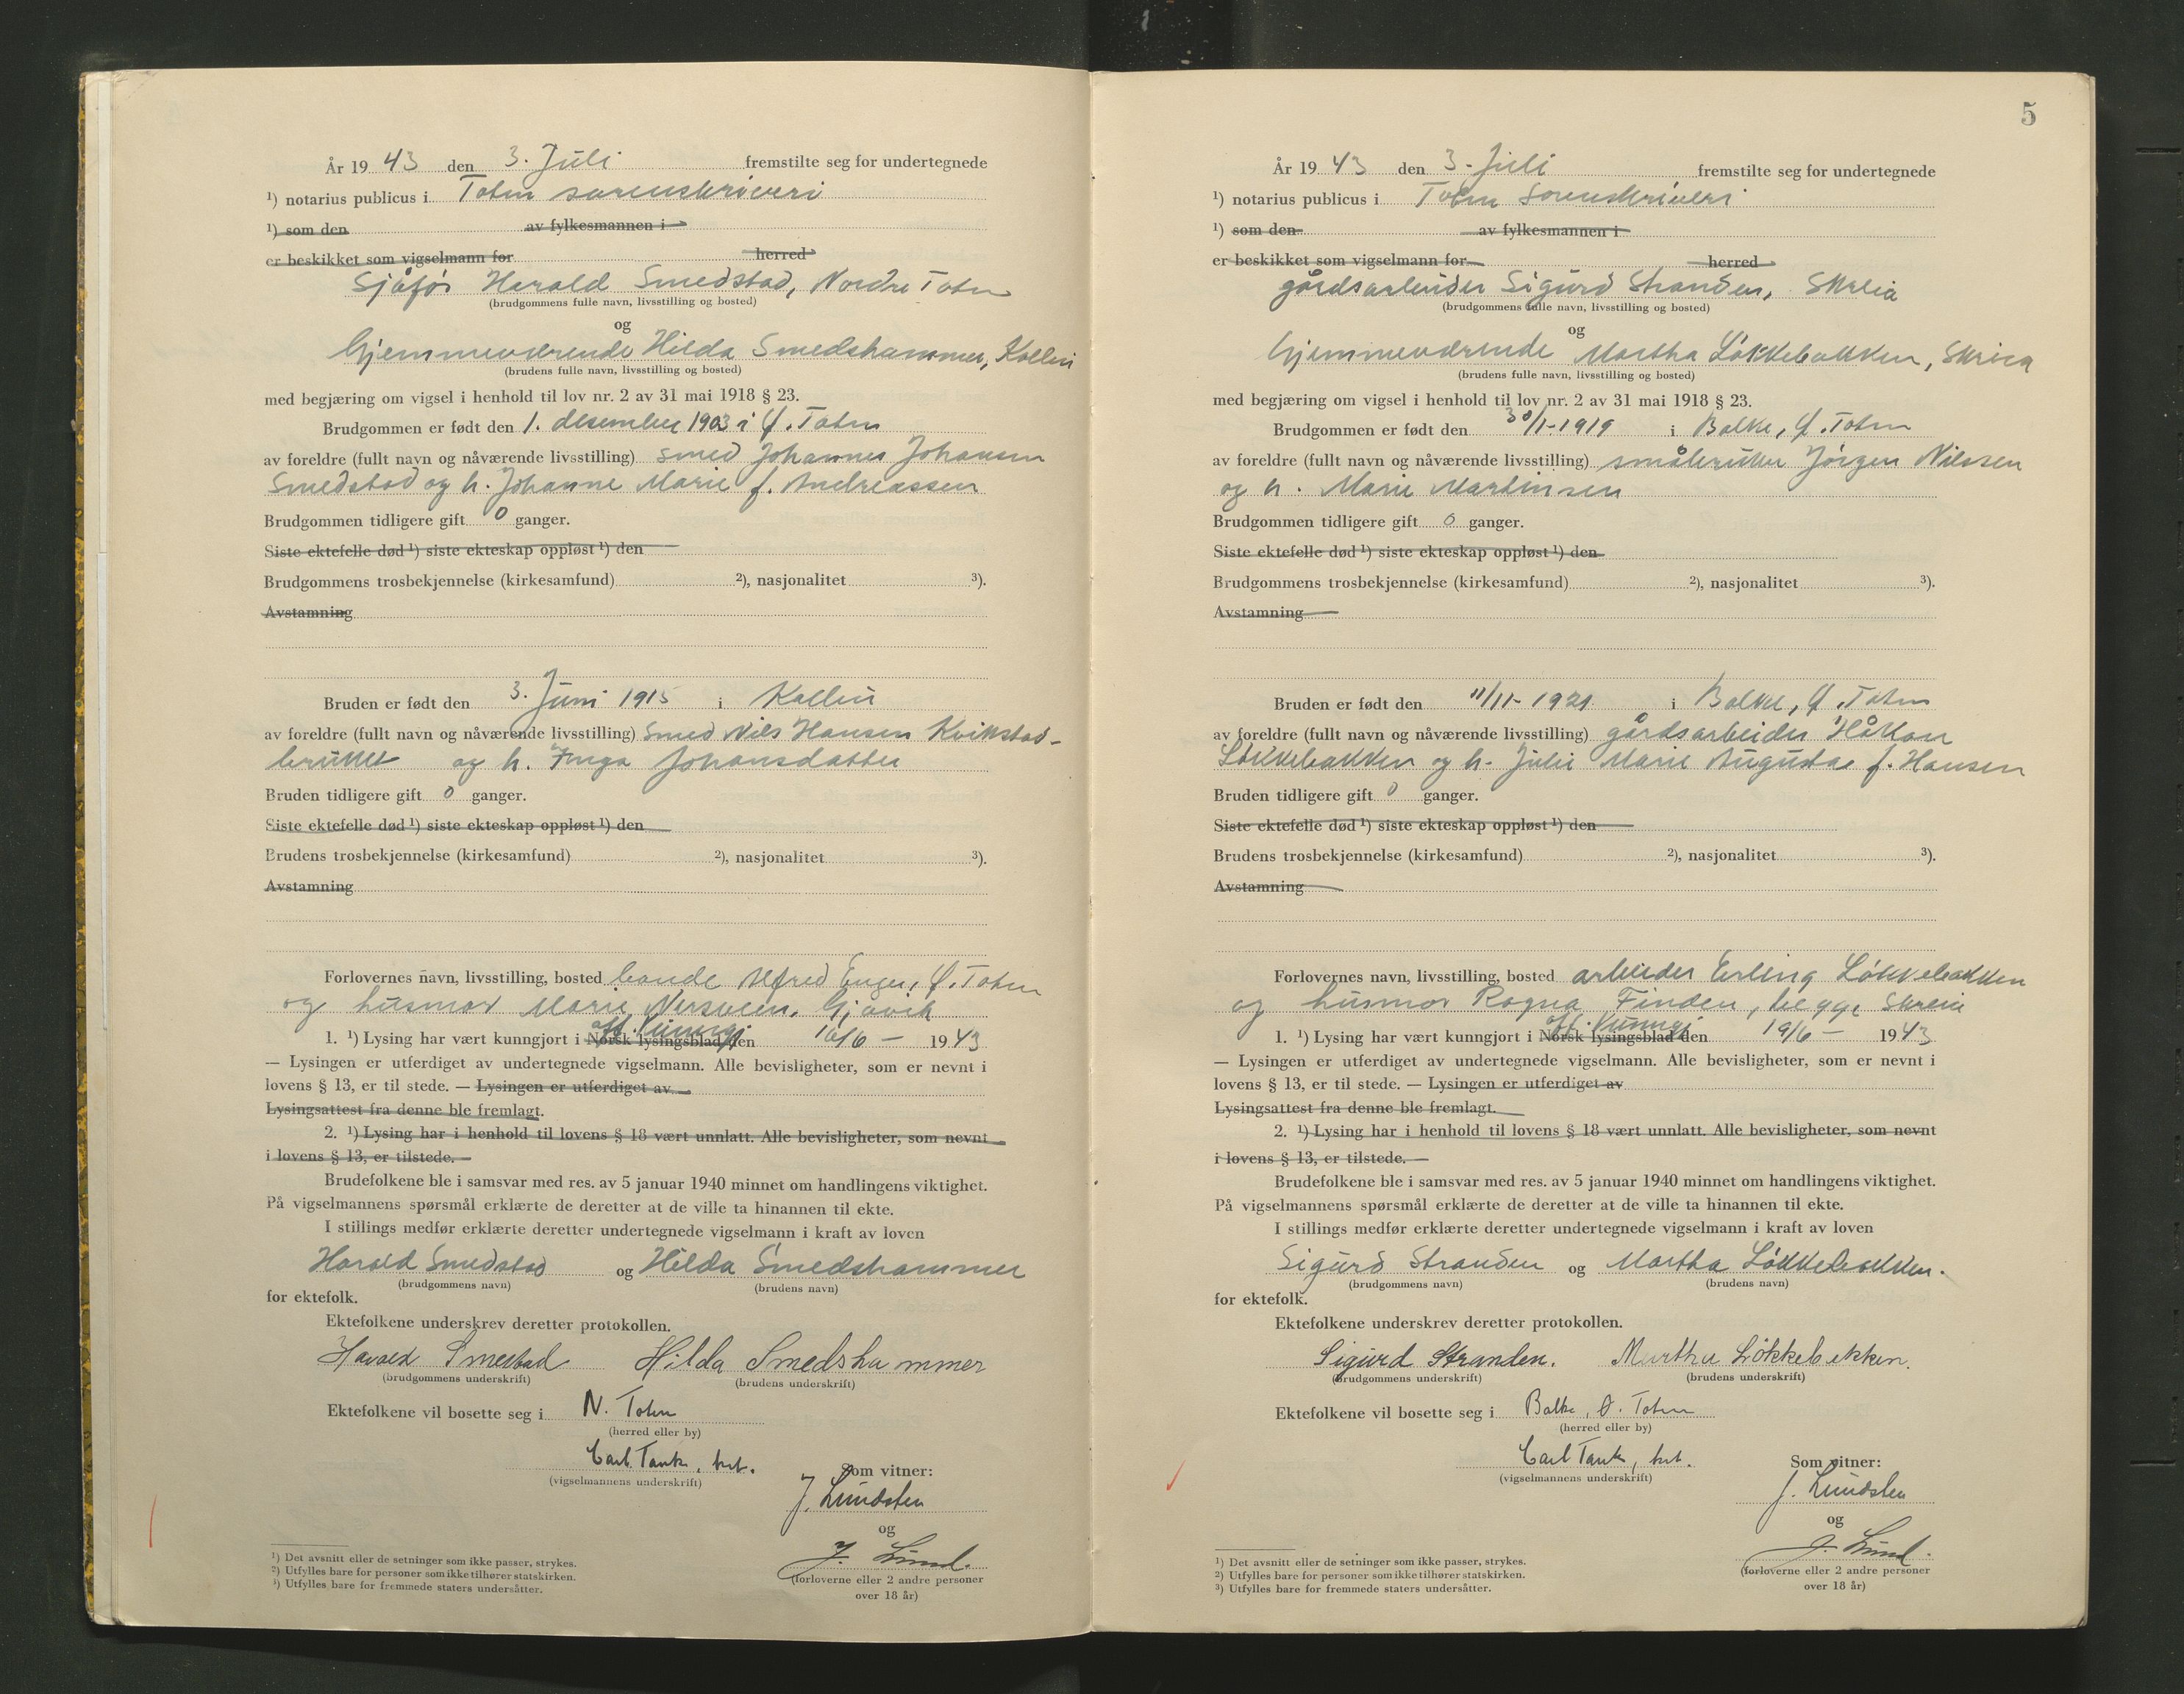 År 19 43 den 3. Juli fremstilte seg for undertegnede
¹) notarius publicus i Toten sorenskriveri
¹) som den av fylkesmannen i
er beskikket som vigselmann for herred
Sjåfør Harald Smedstad, Nordre Toten
(brudgommens fulle navn, livsstilling og bosted)
og
hjemmeværende Hilda Smedshammer, Kolbu
(brudens fulle navn, livsstilling og bosted)
med begjæring om vigsel i henhold til lov nr. 2 av 31 mai 1918 § 23.
Brudgommen er født den 1. desember 1903 i Ø. Toten
av foreldre (fullt navn og nåværende livsstilling) smed Johannes Johansen
Smedstad og h. Johanne Marie f. Andreassen
Brudgommen tidligere gift 0 ganger.
Siste ektefelle død ¹) siste ekteskap oppløst ¹) den
Brudgommens trosbekjennelse (kirkesamfund) ²), nasjonalitet ³).
Avstamning
Bruden er født den 3. Juni 1915 i Kolbu
av foreldre (fullt navn og nåværende livsstilling) Smed Nils Hansen Kvikstad-
bruket og h. Inga Johansdatter
Bruden tidligere gift 0 ganger.
Siste ektefelle død ¹) siste ekteskap oppløst ¹) den
Brudens trosbekjennelse (kirkesamfund) ²), nasjonalitet ³).
Avstamning
Forlovernes navn, livsstilling, bosted bonde Alfred Enger, Ø. Toten
og husmor Marie Nersveen, Gjøvik
off. Kunngj.
1. ¹) Lysing har vært kunngjort i Norsk lysingsblad den 16/6 – 19 43
— Lysingen er utferdiget av undertegnede vigselmann. Alle bevisligheter, som er nevnt i
lovens § 13, er til stede. — Lysingen er utferdiget av
Lysingsattest fra denne ble fremlagt.
2. ¹) Lysing har i henhold til lovens § 18 vært unnlatt. Alle bevisligheter, som nevnt
i lovens § 13, er tilstede.
Brudefolkene ble i samsvar med res. av 5 januar 1940 minnet om handlingens viktighet.
På vigselmannens spørsmål erklærte de deretter at de ville ta hinannen til ekte.
I stillings medfør erklærte deretter undertegnede vigselmann i kraft av loven
Harald Smedstad og Hilda Smedshammer
(brudgommens navn) (brudens navn)
for ektefolk.
Ektefolkene underskrev deretter protokollen.
Harald Smestad Hilda Smedshammer
(brudgommens underskrift) (brudens underskrift)
Ektefolkene vil bosette seg i N. Toten
(herred eller by)
Carl Tank,
(vigselmannens underskrift)
Som vitner:
J. Lundsten
og
J. Lund.
(forloverne eller 2 andre personer
over 18 år)
¹) Det avsnitt eller de setninger som ikke passer, strykes.
²) Utfylles bare for personer som ikke tilhører statskirken.
³) Utfylles bare for fremmede staters undersåtter.
5
År 19 43 den 3. Juli fremstilte seg for undertegnede
¹) notarius publicus i Toten Sorenskriveri
¹) som den av fylkesmannen i
er beskikket som vigselmann for herred
gårdsarbeider Sigurd Stranden, Skreia
(brudgommens fulle navn, livsstilling og bosted)
og
hjemmeværende Martha Løkkebakken, Skreia
(brudens fulle navn, livsstilling og bosted)
med begjæring om vigsel i henhold til lov nr. 2 av 31 mai 1918 § 23.
Brudgommen er født den 30/1-1919 i Balke, Ø. Toten
av foreldre (fullt navn og nåværende livsstilling) småbruker Jørgen Nilssen
og h. Marie Martinsen
Brudgommen tidligere gift 0 ganger.
Siste ektefelle død ¹) siste ekteskap oppløst ¹) den
Brudgommens trosbekjennelse (kirkesamfund) ²), nasjonalitet ³).
Avstamning
Bruden er født den 11/11-1921 i Balke, Ø. Toten
av foreldre (fullt navn og nåværende livsstilling) gårdsarbeider Håkon
Løkkebakken og h. Julie Marie Augusta f. Hansen
Bruden tidligere gift 0 ganger.
Siste ektefelle død ¹) siste ekteskap oppløst ¹) den
Brudens trosbekjennelse (kirkesamfund) ²), nasjonalitet ³).
Avstamning
Forlovernes navn, livsstilling, bosted arbeider Erling Løkkebakken
og husmor Ragna Finden, begge Skreia
off. Kunngj.
1. ¹) Lysing har vært kunngjort i Norsk lysingsblad den 19/6 – 19 43
— Lysingen er utferdiget av undertegnede vigselmann. Alle bevisligheter, som er nevnt i
lovens § 13, er til stede. — Lysingen er utferdiget av
Lysingsattest fra denne ble fremlagt.
2. ¹) Lysing har i henhold til lovens § 18 vært unnlatt. Alle bevisligheter, som nevnt
i lovens § 13, er tilstede. —
Brudefolkene ble i samsvar med res. av 5 januar 1940 minnet om handlingens viktighet.
På vigselmannens spørsmål erklærte de deretter at de ville ta hinannen til ekte.
I stillings medfør erklærte deretter undertegnede vigselmann i kraft av loven
Sigurd Stranden og Martha Løkkebakken.
(brudgommens navn) (brudens navn)
for ektefolk.
Ektefolkene underskrev deretter protokollen.
Sigurd Stranden. Martha Løkkebakken.
(brudgommens underskrift) (brudens underskrift)
Ektefolkene vil bosette seg i Balke, Ø. Toten
(herred eller by)
Carl Tank,
(vigselmannens underskrift)
Som vitner:
J. Lundsten
og
J. Lund.
(forloverne eller 2 andre personer
over 18 år)
¹) Det avsnitt eller de setninger som ikke passer, strykes.
²) Utfylles bare for personer som ikke tilhører statskirken.
³) Utfylles bare for fremmede staters undersåtter.